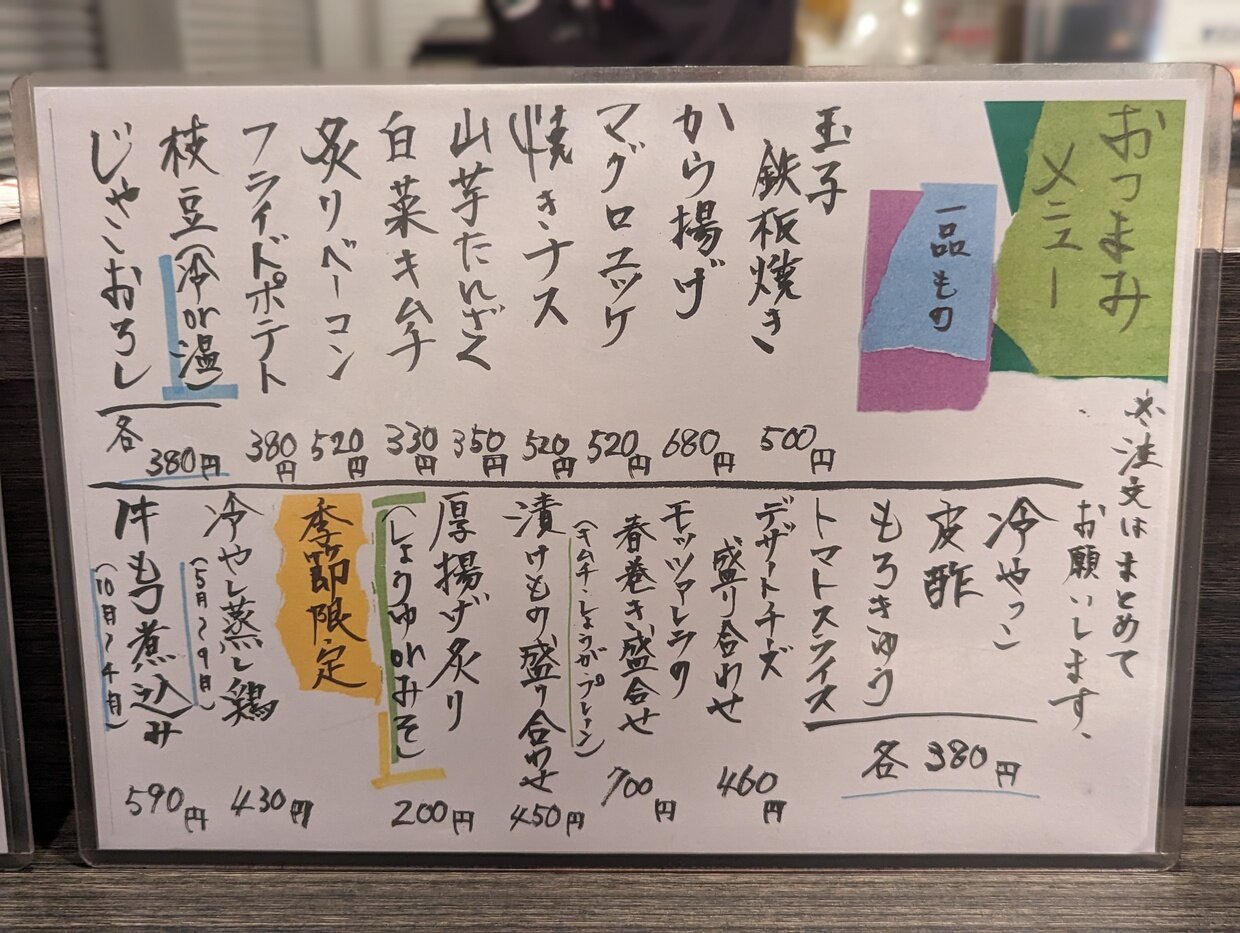 おつまみ
メニュー
一品もの
玉子
鉄板焼き
500円
から揚げ
680円
マグロユッケ
520円
焼きナス
520円
山芋たんざく
350円
白菜キムチ
330円
炙りベーコン
520円
フライドポテト
380円
枝豆(冷or温)
じゃこおろし
各 380円
※注文はまとめて
お願いします、
冷やっこ
皮酢
もろきゅう
トマトスライス
各 380円
デザートチーズ
盛り合わせ
460円
モッツァレラの
春巻き盛合せ
(キムチ・しょうが・プレーン)
700円
漬けもの盛り合わせ
450円
厚揚げ炙り
(しょうゆorみそ)
200円
季節限定
冷やし蒸し鶏
(5月〜9月)
430円
牛もつ煮込み
(10月〜4月)
590円